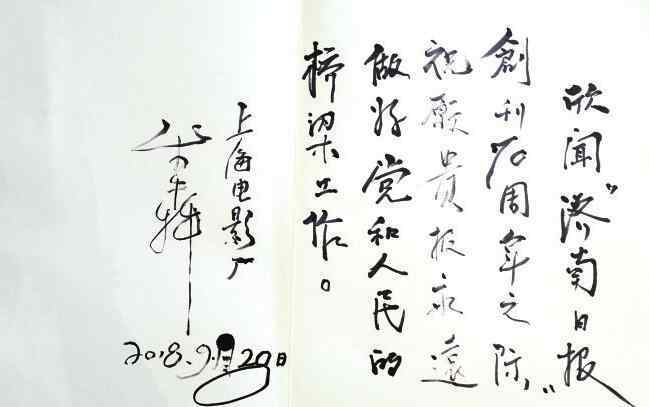 欣闻“济南日报”
創刊70周年之际,
祝愿貴报永遠
做好党和人民的
桥梁工作。
上海电影厂
牛犇
2018.9月20日